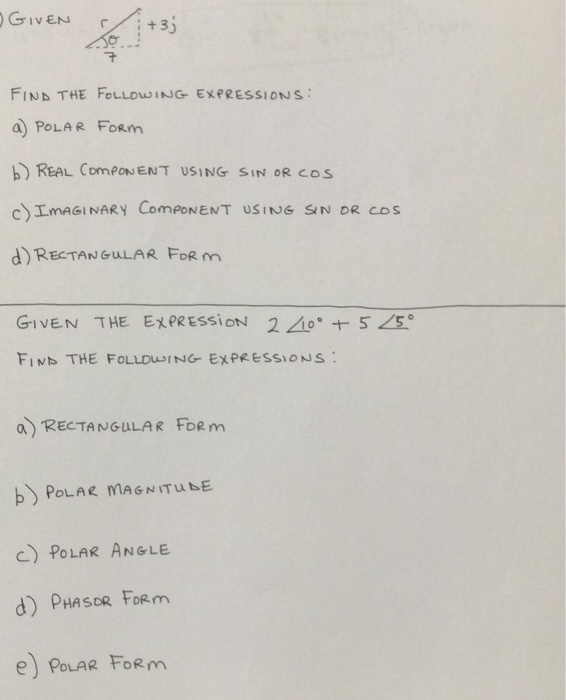 ) GIVEN
r
+3j
θ
7
FIND THE FOLLOWING EXPRESSIONS:
a) POLAR FORM
b) REAL COMPONENT USING SIN OR COS
c) IMAGINARY COMPONENT USING SIN OR COS
d) RECTANGULAR FORM
GIVEN THE EXPRESSION 2 ∠10° + 5 ∠5°
FIND THE FOLLOWING EXPRESSIONS:
a) RECTANGULAR FORM
b) POLAR MAGNITUDE
c) POLAR ANGLE
d) PHASOR FORM
e) POLAR FORM